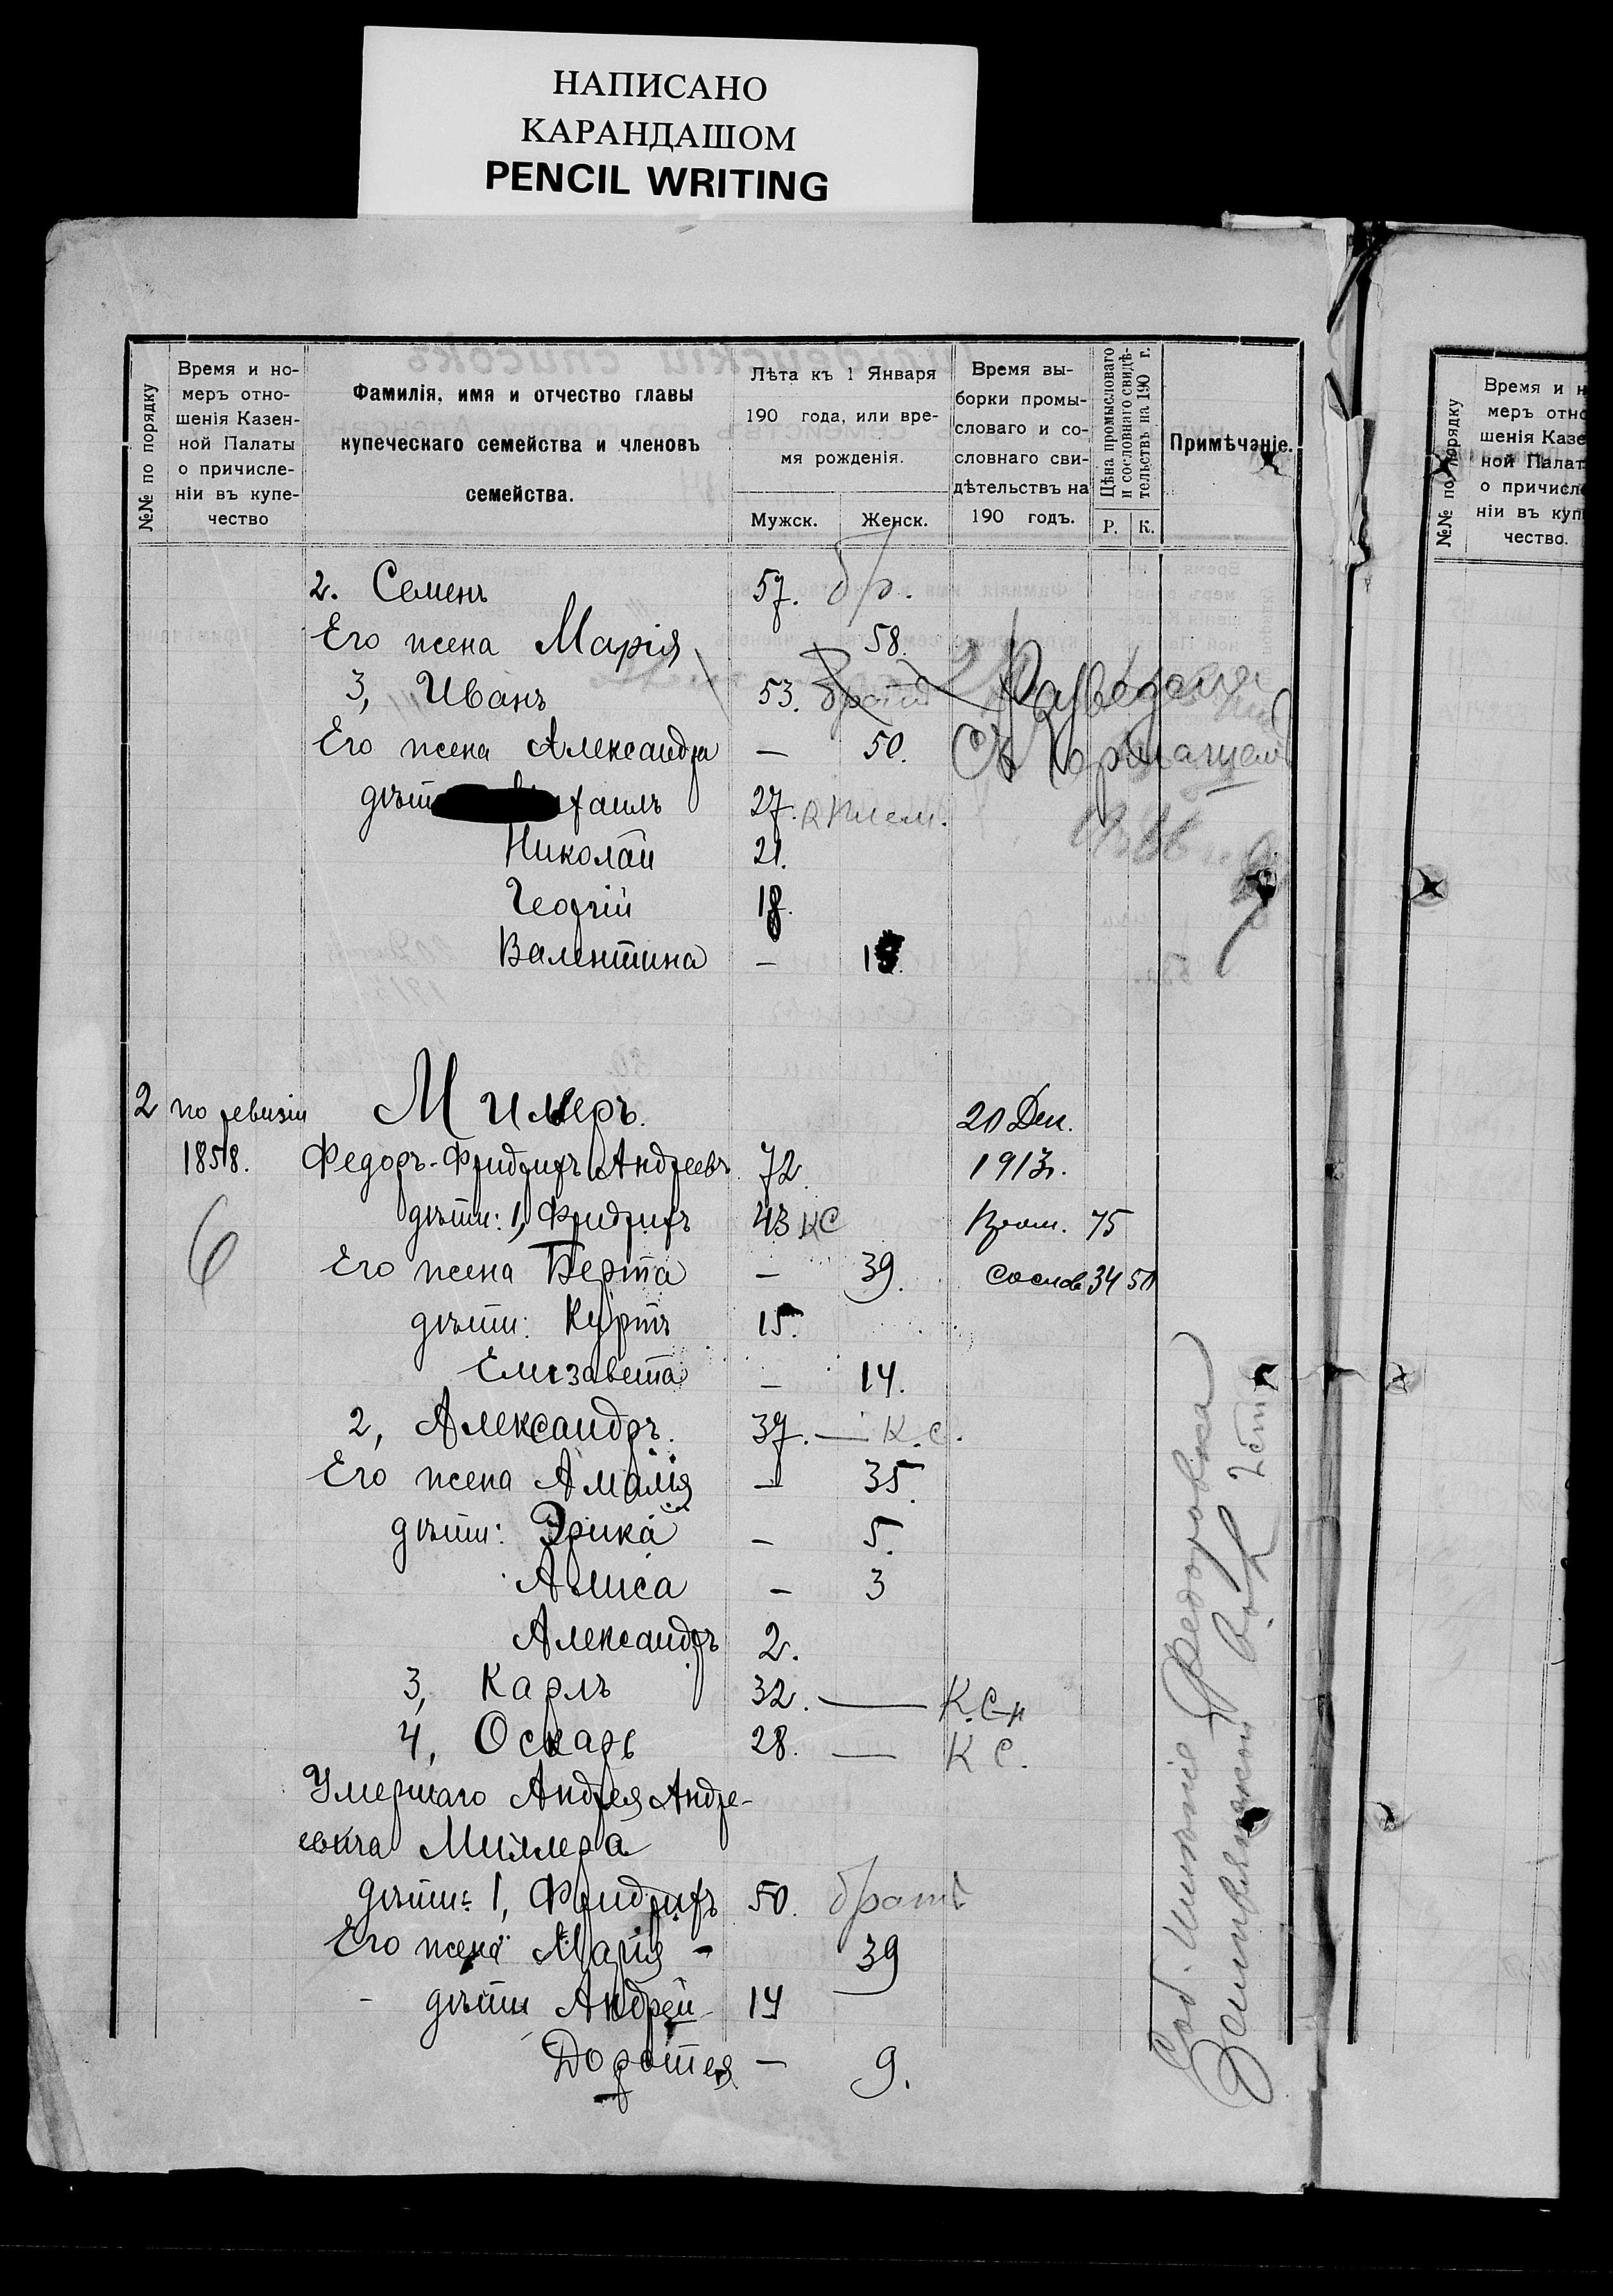 НАПИСАНО
КАРАНДАШОМ
PENCIL WRITING
№№ по порядку
Время и но-
меръ отно-
шенія Казен-
ной Палаты
о причисле-
ніи въ купе-
чество
Фамилія, имя и отчество главы
купеческаго семейства и членовъ
семейства.
Лѣта къ 1 Января
190 года, или вре-
мя рожденія.
Мужск. Женск.
Время вы-
борки промы-
словаго и со-
словнаго сви-
дѣтельствъ на
190 годъ.
Цѣна промысловаго
и сословнаго свидѣ-
тельствъ на 190 г.
Р. К.
Примѣчаніе.
2. Семенъ 57. бр.
Его жена Марія 58.
3, Иванъ 53. братъ
Его жена Александра — 50.
дѣти 27. плем.
Николай 21.
Георгій 18.
Валентина —
2 по ревизіи Милеръ. 20 Дек.
1858. Федоръ-Фридрихъ Андреевъ 72. 1913г.
дѣти: 1, Фридрихъ 43 КС Пром. 75
6 Его жена Берта — 39. сослов 34 50
дѣти: Куртъ 15.
Елизавета — 14.
2, Александръ. 37. — К.С.
Его жена Амалія — 35.
дѣти: Эрика — 5.
Алиса — 3
Александръ 2.
3, Карлъ 32. — К.С.
4, Оскаръ 28. — К С.
Умершаго Андрея Андре-
евича Миллера
дѣти: 1, Фридрихъ 50. братъ
Его жена Марія - 39
- дѣти Андрей 14
Доротея — 9.
Соб. Имѣніе Федоровка
№№ по порядку
Время и н
меръ отно
шенія Казе
ной Палат
о причисл
ніи въ куп
чество.